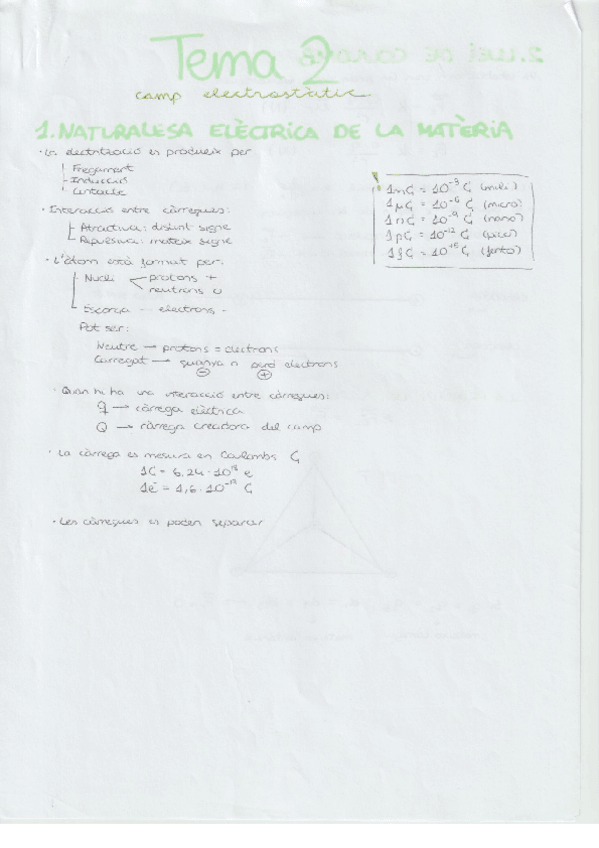 Tema 2
camp electrostàtic
1. NATURALESA ELÈCTRICA DE LA MATÈRIA
· La electrització es produeix per
Fregament
Inducció
Contacte
1mC = 10⁻³ C (mili)
1μC = 10⁻⁶ C (micro)
1nC = 10⁻⁹ C (nano)
1pC = 10⁻¹² C (pico)
1fC = 10⁻¹⁵ C (femto)
· Interacció entre càrregues:
Atractiva: distint signe
Repulsiva: mateix signe
· L'àtom està format per:
Nucli protons +
neutrons 0
Escorça -- electrons -
Pot ser:
Neutre → protons = electrons
Carregat → guanya o perd electrons
⊖ ⊕
· Quan hi ha una interacció entre càrregues:
q → càrrega elèctrica
Q → càrrega creadora del camp
· La càrrega es mesura en Coulombs C
1C = 6,24·10¹⁸ e
1e = 1,6·10⁻¹⁹ C
· Les càrregues es poden separar